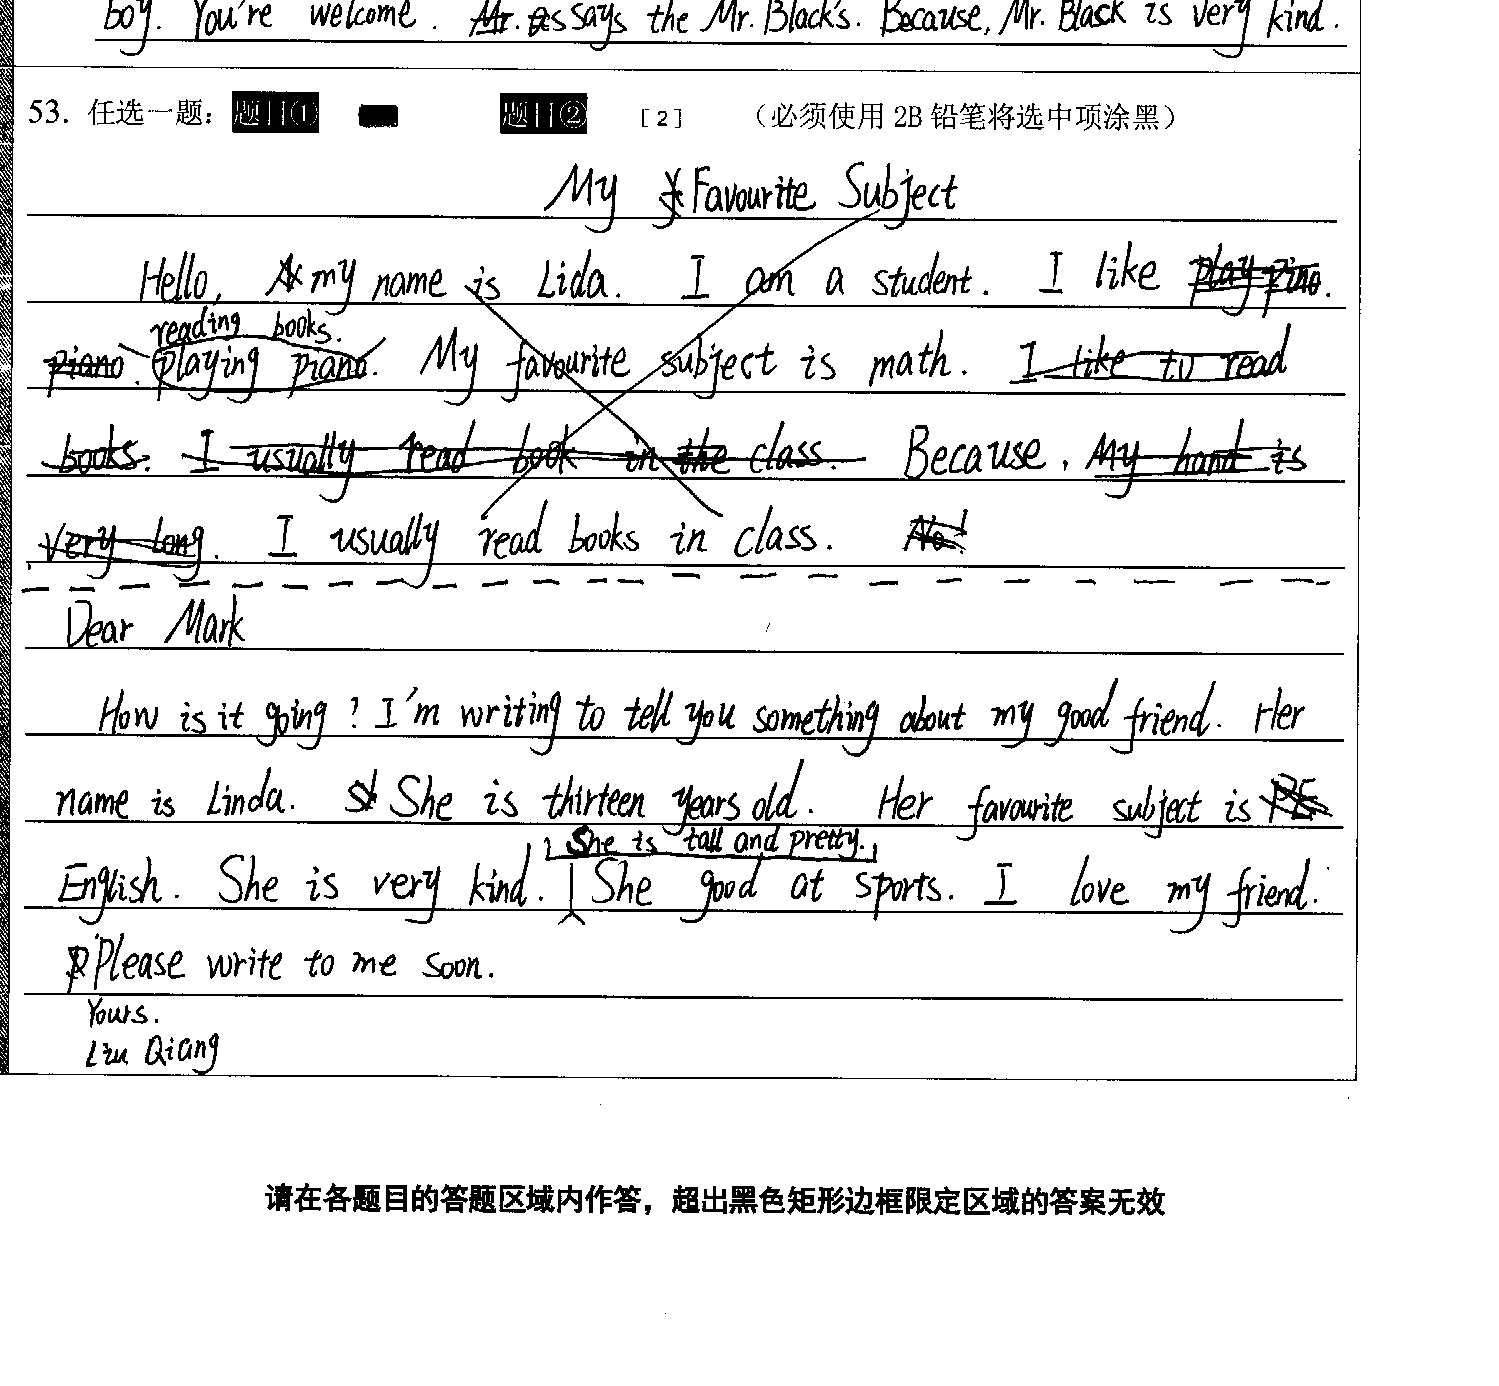 boy. You're welcome. Mr. as says the Mr. Black's. Because, Mr. Black is very kind.
53. 任选一题： 题目① 题目② [2] （必须使用 2B 铅笔将选中项涂黑）
My Favourite Subject
Hello, my name is Lida. I am a student. I like play pino.
reading books.
piano. playing piano. My favourite subject is math. I like to read
books. I usually read book in the class. Because, My hand is
very long. I usually read books in class. No!
Dear Mark
How is it going? I'm writing to tell you something about my good friend. Her
name is Linda. She is thirteen years old. Her favourite subject is PE
She is tall and pretty.
English. She is very kind. She good at sports. I love my friend.
Please write to me soon.
Yours.
Liu Qiang
请在各题目的答题区域内作答，超出黑色矩形边框限定区域的答案无效